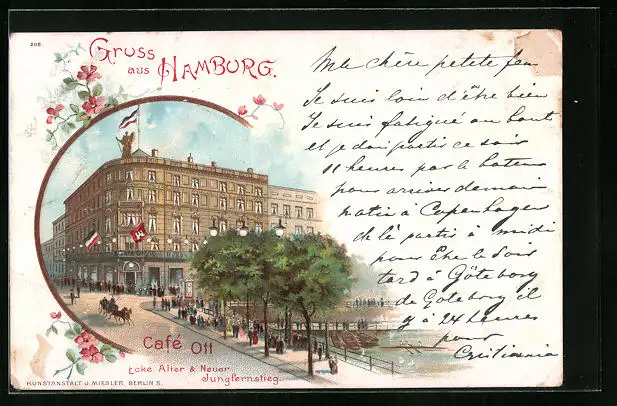 208.
Gruss
aus HAMBURG.
Café Ott
Ecke Alter & Neuer
Jungfernstieg.
KUNSTANSTALT J. MIESLER, BERLIN S.
Ma chère petite
Je suis loin d'être bien
Je suis fatigué au bout
et je dois partir ce soir
11 heures par le bateau
pour arriver demain
matin à Copenhagen
de là partir à midi
pour être le soir
tard à Göteborg
de Goteborg il
y a 24 heures
pour
Cristiania